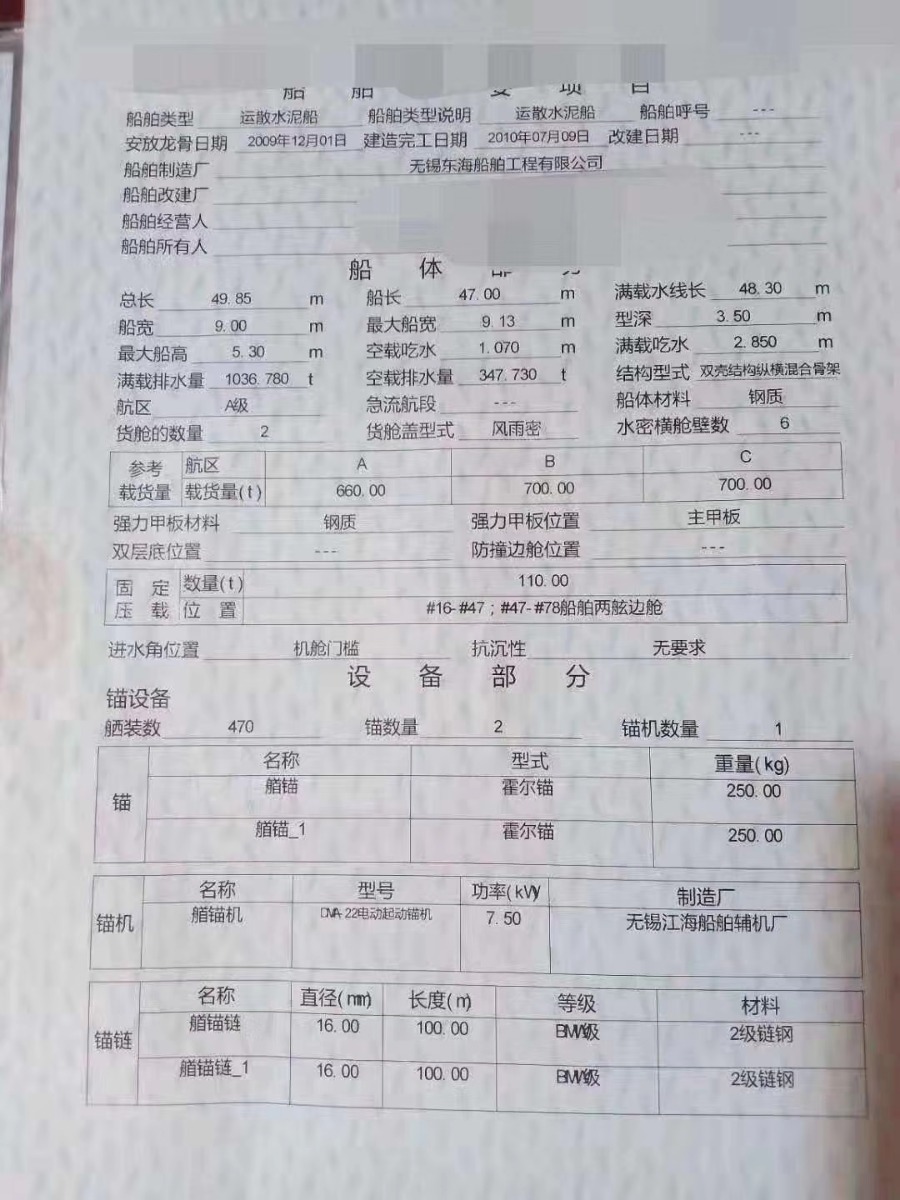 船舶类型 运散水泥船 船舶类型说明 运散水泥船 船舶呼号 ---
安放龙骨日期 2009年12月01日 建造完工日期 2010年07月09日 改建日期 ---
船舶制造厂 无锡东海船舶工程有限公司
船舶改建厂
船舶经营人
船舶所有人
船 体 部 分
总长 49.85 m 船长 47.00 m 满载水线长 48.30 m
船宽 9.00 m 最大船宽 9.13 m 型深 3.50 m
最大船高 5.30 m 空载吃水 1.070 m 满载吃水 2.850 m
满载排水量 1036.780 t 空载排水量 347.730 t 结构型式 双壳结构纵横混合骨架
航区 A级 急流航段 --- 船体材料 钢质
货舱的数量 2 货舱盖型式 风雨密 水密横舱壁数 6
参考 航区 A B C
载货量 载货量(t) 660.00 700.00 700.00
强力甲板材料 钢质 强力甲板位置 主甲板
双层底位置 --- 防撞边舱位置 ---
固 定 数量(t) 110.00
压 载 位 置 #16-#47；#47-#78船舶两舷边舱
进水角位置 机舱门槛 抗沉性 无要求
设 备 部 分
锚设备
舾装数 470 锚数量 2 锚机数量 1
锚 名称 型式 重量(kg)
艏锚 霍尔锚 250.00
艏锚_1 霍尔锚 250.00
锚机 名称 型号 功率(kW) 制造厂
艏锚机 电动起动锚机 7.50 无锡江海船舶辅机厂
锚链 名称 直径(mm) 长度(m) 等级 材料
艏锚链 16.00 100.00 2级链钢
艏锚链_1 16.00 100.00 2级链钢